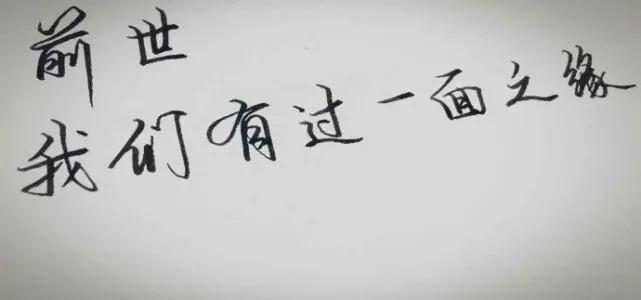 前世
我们有过一面之缘